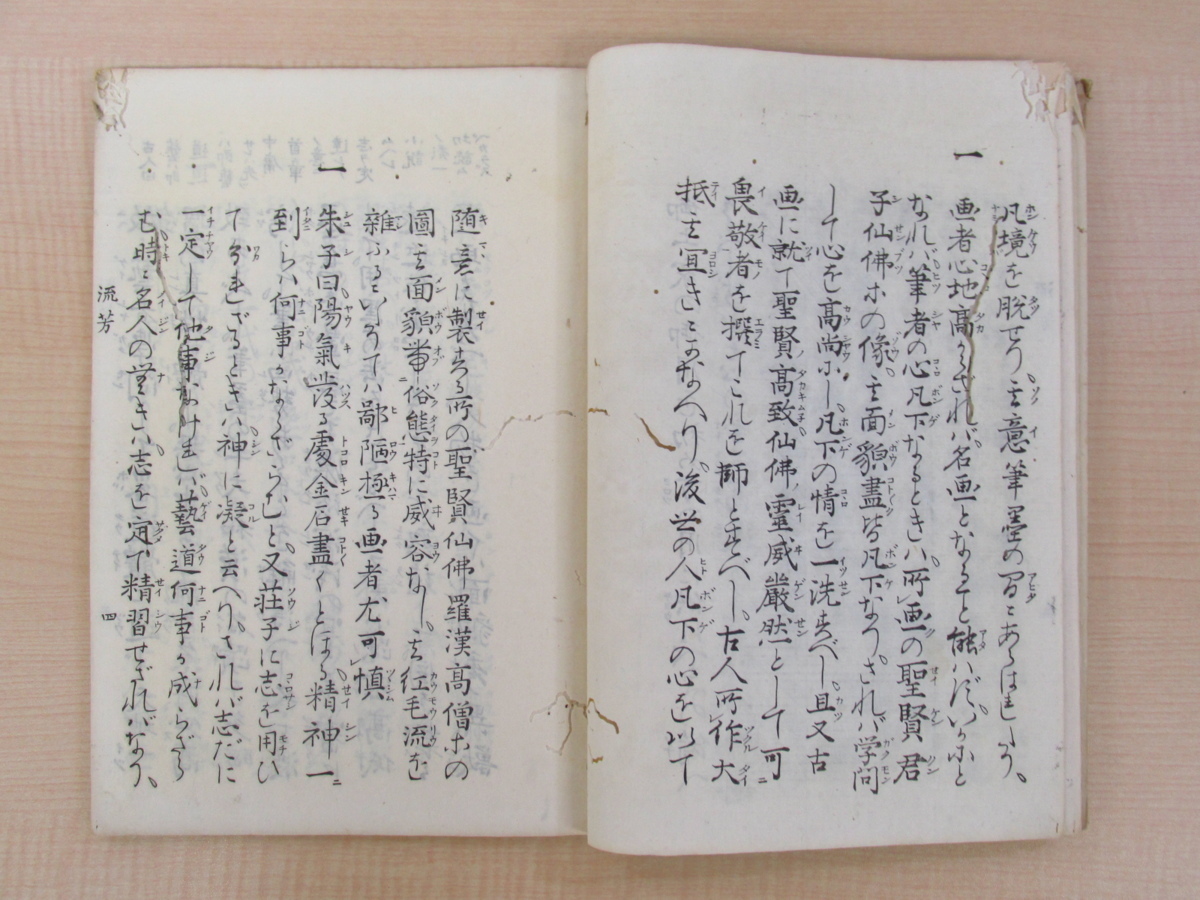 凡境を脱せり其意筆墨の間にあらはれたり
一
画者心地高からざれバ名画となること能ハずいかにと
なれバ筆者の心凡下なるときハ所画の聖賢君
子仙佛等の像其面貌盡皆凡下なりされバ学問
して心を高尚にし凡下の情を一洗すべし且又古
画に就て聖賢高致仙佛霊威嚴然として可
畏敬者を撰てこれを師とすべし古人所作大
抵其宜きにかなへり後世の人凡下の心を以て
随意に製する所の聖賢仙佛羅漢髙僧等の
圖其面貌帯俗態特に威容なし其紅毛流を
雜ふるにいたりてハ鄙陋極る画者尤可慎
一
朱子曰陽氣發る處金石盡くとほる精神一
到らハ何事かならざらむと又荘子に志を用ひ
て分れざるときハ神に凝と云へりされバ志だに
一定して他事なけれバ藝道何事か成らざら
む時に名人の無きハ志を定て精習せざれバなり
流芳
四